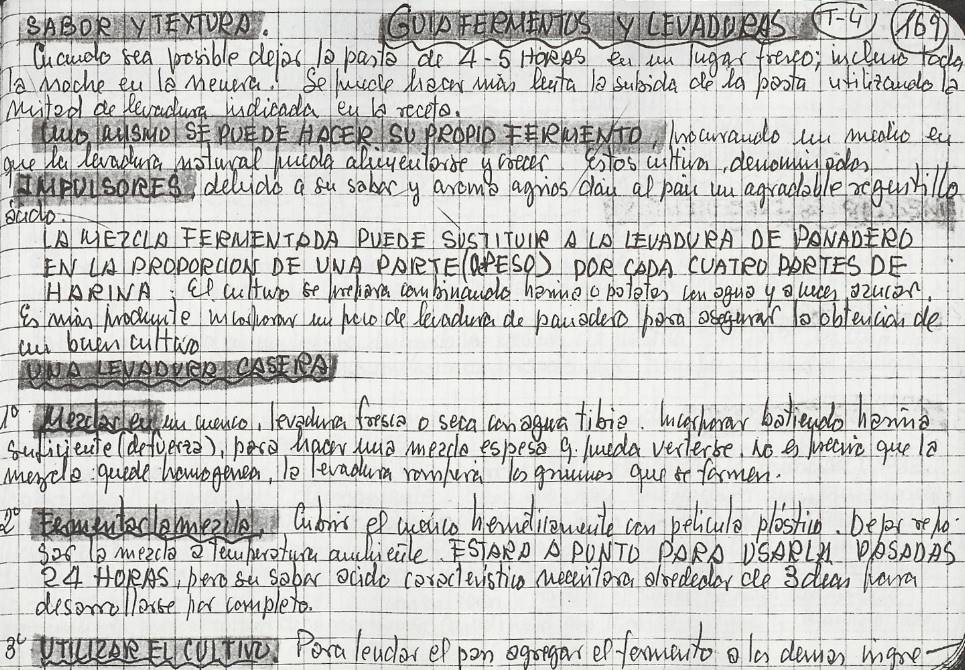 SABOR Y TEXTURA. GUIA FERMENTOS Y LEVADURAS T-4 169
Cuando sea posible dejar la pasta de 4-5 HORAS en un lugar fresco; incluso toda
la noche en la nevera. Se puede hacer más lenta la subida de la pasta utilizando la
mitad de levadura indicada en la receta.
UNO MISMO SE PUEDE HACER SU PROPIO FERMENTO, procurando un medio en
que la levadura natural pueda alimentarse y crecer Estos cultivos, denominados
IMPULSORES, debido a su sabor y aroma agrios dan al pan un agradable regustillo
ácido.
LA MEZCLA FERMENTADA PUEDE SUSTITUIR A LA LEVADURA DE PANADERO
EN LA PROPORCION DE UNA PARTE (A PESO) POR CADA CUATRO PARTES DE
HARINA. El cultivo se prepara combinando harina o patatas con agua y a veces azucar.
Es más prudente incorporar un poco de levadura de panadero para asegurar la obtencion de
un buen cultivo
UNA LEVADURA CASERA
1º Mezclar en un cuenco, levadura fresca o seca con agua tibia. Incorporar batiendo harina
suficiente (de fuerza), para hacer una mezcla espesa q. pueda verterse. No es preciso que la
mezcla quede homogenea, la levadura rompera los grumos que se formen.
2º Fermentar la mezcla. Cubrir el cuenco hermeticamente con pelicula plástico. Dejar repo-
sar la mezcla a temperatura ambiente. ESTARA A PUNTO PARA USARLA PASADAS
24 HORAS, pero su sabor acido caracteristico necesitara alrededor de 3 dias para
desarrollarse por completo.
3º UTILIZAR EL CULTIVO. Para leudar el pan agregar el fermento a los demas ingre-